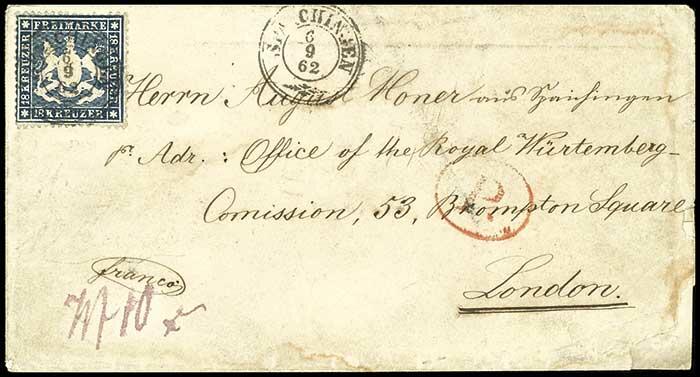 FREIMARKE
18 KREUZER
18 KREUZER
18 KREUZER
6
9
62
CHINGEN
6
9
62
Herrn August Honer aus Spaichingen
pr. Adr.: Office of the Royal Würtemberg-
Comission, 53, Brompton Square
London.
franco